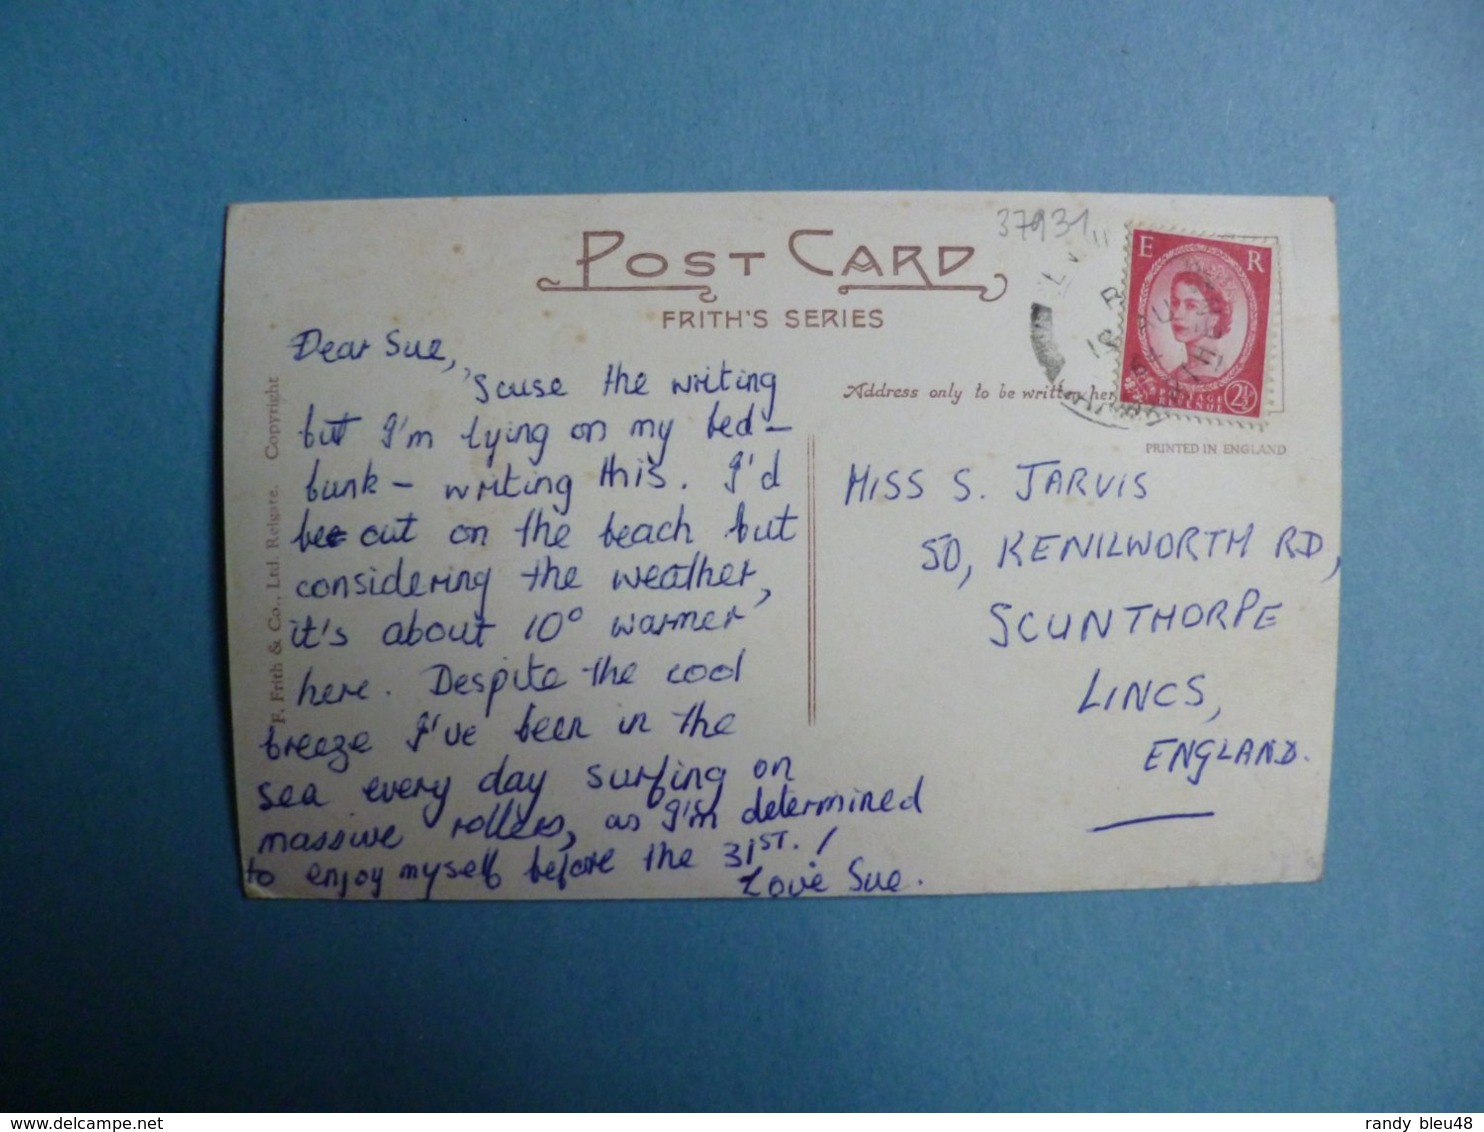 37931
POST CARD
FRITH'S SERIES
E R
2½
Address only to be written her
PRINTED IN ENGLAND
F. Frith & Co., Ltd. Reigate. Copyright
Dear Sue,
'Scuse the writing
but I'm lying on my bed-
bunk - writing this. I'd
be out on the beach but
considering the weather,
it's about 10° warmer
here. Despite the cool
breeze I've been in the
sea every day surfing on
massive rollers, as I'm determined
to enjoy myself before the 31ST.!
Love Sue.
MISS S. JARVIS
50, KENILWORTH RD,
SCUNTHORPE
LINCS,
ENGLAND.
randy_bleu48